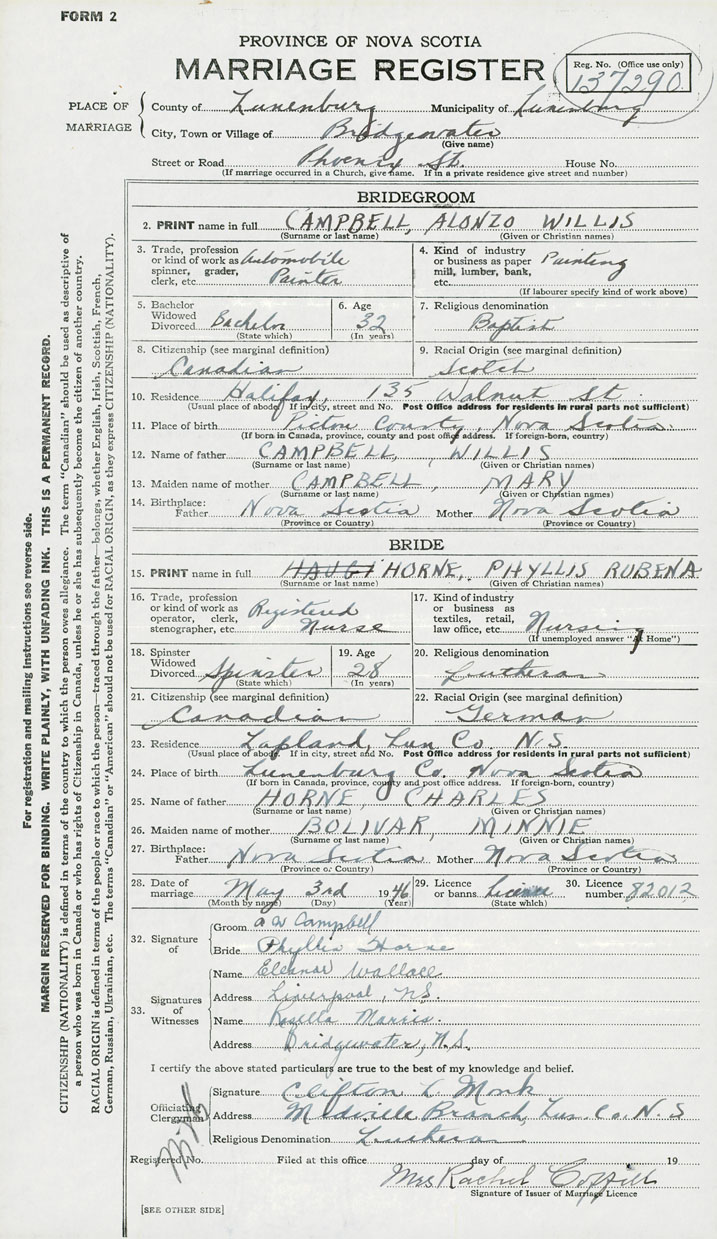 FORM 2
PROVINCE OF NOVA SCOTIA
MARRIAGE REGISTER
Reg. No. (Office use only)
137290
PLACE OF MARRIAGE
County of Lunenburg Municipality of Lunenburg
City, Town or Village of Bridgewater
(Give name)
Street or Road Phoenix St. House No.
(If marriage occurred in a Church, give name. If in a private residence give street and number)
BRIDEGROOM
2. PRINT name in full CAMPBELL, ALONZO WILLIS
(Surname or last name) (Given or Christian names)
3. Trade, profession or kind of work as spinner, grader, clerk, etc. Automobile Painter
4. Kind of industry or business as paper mill, lumber, bank, etc. Painting
(If labourer specify kind of work above)
5. Bachelor Widowed Divorced Bachelor
(State which)
6. Age 32
(In years)
7. Religious denomination
Baptist
8. Citizenship (see marginal definition)
Canadian
9. Racial Origin (see marginal definition)
Scotch
10. Residence Halifax, 135 Walnut St.
(Usual place of abode) If in city, street and No. Post Office address for residents in rural parts not sufficient)
11. Place of birth Pictou County, Nova Scotia
(If born in Canada, province, county and post office address. If foreign-born, country)
12. Name of father CAMPBELL, WILLIS
(Surname or last name) (Given or Christian names)
13. Maiden name of mother CAMPBELL, MARY
(Surname or last name) (Given or Christian names)
14. Birthplace: Father Nova Scotia Mother Nova Scotia
(Province or Country) (Province or Country)
BRIDE
15. PRINT name in full HORNE, PHYLLIS RUBENA
(Surname or last name) (Given or Christian names)
16. Trade, profession or kind of work as operator, clerk, stenographer, etc. Registered Nurse
17. Kind of industry or business as textiles, retail, law office, etc. Nursing
(If unemployed answer "At Home")
18. Spinster Widowed Divorced Spinster
(State which)
19. Age 28
(In years)
20. Religious denomination
Lutheran
21. Citizenship (see marginal definition)
Canadian
22. Racial Origin (see marginal definition)
German
23. Residence Lapland, Lun Co. N.S.
(Usual place of abode) If in city, street and No. Post Office address for residents in rural parts not sufficient)
24. Place of birth Lunenburg Co. Nova Scotia
(If born in Canada, province, county and post office address. If foreign-born, country)
25. Name of father HORNE, CHARLES
(Surname or last name) (Given or Christian names)
26. Maiden name of mother BOLIVAR, MINNIE
(Surname or last name) (Given or Christian names)
27. Birthplace: Father Nova Scotia Mother Nova Scotia
(Province or Country) (Province or Country)
28. Date of marriage May 3rd 1946
(Month by name) (Day) (Year)
29. Licence or banns. Licence
(State which)
30. Licence number 82012
32. Signature of
Groom A W Campbell
Bride Phyllis Horne
33. Signatures of Witnesses
Name Eleanor Wallace
Address Liverpool, N.S.
Name Rosella
Address Bridgewater, N.S.
I certify the above stated particulars are true to the best of my knowledge and belief.
Officiating Clergyman
Signature Clifton L Monk
Address Branch, Lun. Co. N. S
Religious Denomination Lutheran
Registered No. Filed at this office day of 19
Mrs Rachel
Signature of Issuer of Marriage Licence
[SEE OTHER SIDE]
For registration and mailing instructions see reverse side.
MARGIN RESERVED FOR BINDING. WRITE PLAINLY, WITH UNFADING INK. THIS IS A PERMANENT RECORD.
CITIZENSHIP (NATIONALITY) is defined in terms of the country to which the person owes allegiance. The term "Canadian" should be used as descriptive of
a person who was born in Canada or who has rights of Citizenship in Canada, unless he or she has subsequently become the citizen of another country.
RACIAL ORIGIN is defined in terms of the people or race to which the person—traced through the father—belongs, whether English, Irish, Scottish, French,
German, Russian, Ukrainian, etc. The terms "Canadian" or "American" should not be used for RACIAL ORIGIN, as they express CITIZENSHIP (NATIONALITY).